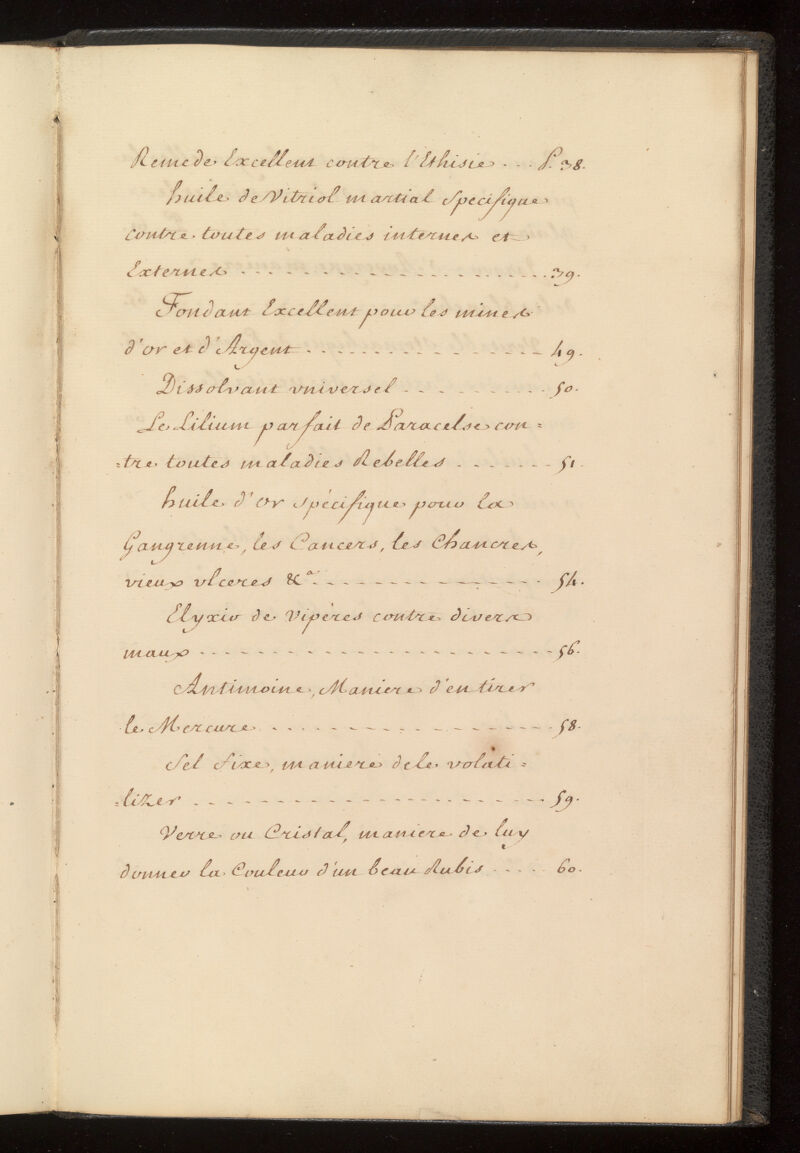 Remede Excellent contre l'Ethisie . . . P. 38.
huile de Vitriol martial specifique
contre toutes maladies internes et
Externes - - - - - - - - - - - - - - - - - - 39.
Fondant Excellent pour les mines
d'or et d'Argent - - - - - - - - - - - - - - 49.
Dissolvant vniversel - - - - - - - - - 50.
Le Lilium parfait de Paracelse con=
=tre toutes maladies Rebelles - - - - - - - 51.
huile d'or spécifique pour la
Gangrenne, les Cancers, les Chancres,
vieux vlceres &a. - - - - - - - - - - - - - 54.
Elyxir de Vipéres contre divers
maux - - - - - - - - - - - - - - - - - - - - 56.
Antimoine, Maniere d'en tirer
le Mercure - - - - - - - - - - - - - - - - 58.
Sel fixe, maniere de le volati=
=lizer - - - - - - - - - - - - - - - - - - - 59.
Verre ou Cristal, maniere de luy
donner la Couleur d'un beau Rubis - - - - 60.